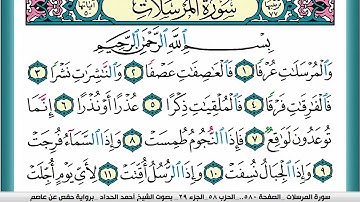 سورة المرسلات
بِسْمِ اللَّهِ الرَّحْمَٰنِ الرَّحِيمِ
وَالْمُرْسَلَاتِ عُرْفًا ١ فَالْعَاصِفَاتِ عَصْفًا ٢ وَالنَّاشِرَاتِ نَشْرًا ٣
فَالْفَارِقَاتِ فَرْقًا ٤ فَالْمُلْقِيَاتِ ذِكْرًا ٥ عُذْرًا أَوْ نُذْرًا ٦ إِنَّمَا
تُوعَدُونَ لَوَاقِعٌ ٧ فَإِذَا النُّجُومُ طُمِسَتْ ٨ وَإِذَا السَّمَاءُ فُرِجَتْ
٩ وَإِذَا الْجِبَالُ نُسِفَتْ ١٠ وَإِذَا الرُّسُلُ أُقِّتَتْ ١١ لِأَيِّ يَوْمٍ أُجِّلَتْ
سورة المرسلات _ الصفحة ٥٨٠_ الحزب ٥٨_الجزء ٢٩ _ بصوت الشيخ أحمد الحداد _برواية حفص عن عاصم